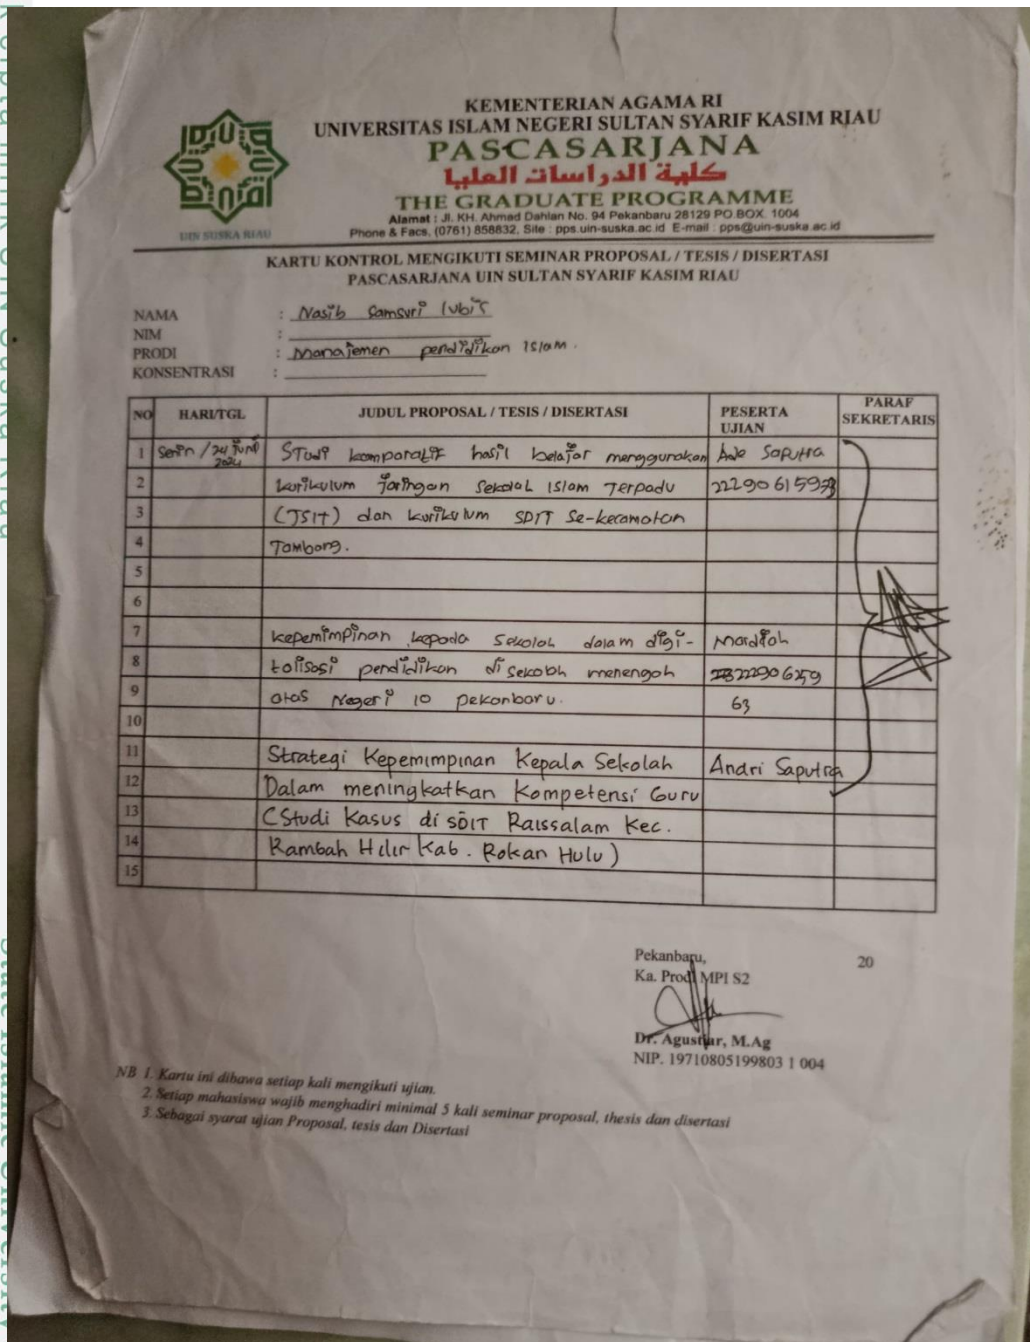 KEMENTERIAN AGAMA RI
UNIVERSITAS ISLAM NEGERI SULTAN SYARIF KASIM RIAU
PASCASARJANA
كلية الدراسات العليا
THE GRADUATE PROGRAMME
Alamat : Jl. KH. Ahmad Dahlan No. 94 Pekanbaru 28129 PO.BOX. 1004
Phone & Facs. (0761) 858832, Site : pps.uin-suska.ac.id E-mail : pps@uin-suska.ac.id
UIN SUSKA RIAU
KARTU KONTROL MENGIKUTI SEMINAR PROPOSAL / TESIS / DISERTASI
PASCASARJANA UIN SULTAN SYARIF KASIM RIAU
NAMA : Nasib Samsuri lubis
NIM :
PRODI : Manajemen pendidikan Islam.
KONSENTRASI :
NO HARI/TGL JUDUL PROPOSAL / TESIS / DISERTASI PESERTA UJIAN PARAF SEKRETARIS
1 Senin / 24 Juni 2024 Studi komparatif hasil belajar menggunakan Ade Saputra
2 kurikulum Jaringan Sekolah Islam Terpadu
3 (JSIT) dan kurikulum SDIT Se-kecamatan
4 Tambang.
5
6
7 kepemimpinan kepada sekolah dalam digi- Mardiah
8 talisasi pendidikan di sekolah menengah
9 atas Negeri 10 pekanbaru. 63
10
11 Strategi Kepemimpinan Kepala Sekolah Andri Saputra
12 Dalam meningkatkan Kompetensi Guru
13 (Studi Kasus di SDIT Raissalam Kec.
14 Rambah Hilir Kab. Rokan Hulu)
15
Pekanbaru, 20
Ka. Prodi MPI S2
Dr. Agustiar, M.Ag
NIP. 19710805199803 1 004
NB 1. Kartu ini dibawa setiap kali mengikuti ujian.
2. Setiap mahasiswa wajib menghadiri minimal 5 kali seminar proposal, thesis dan disertasi
3. Sebagai syarat ujian Proposal, tesis dan Disertasi